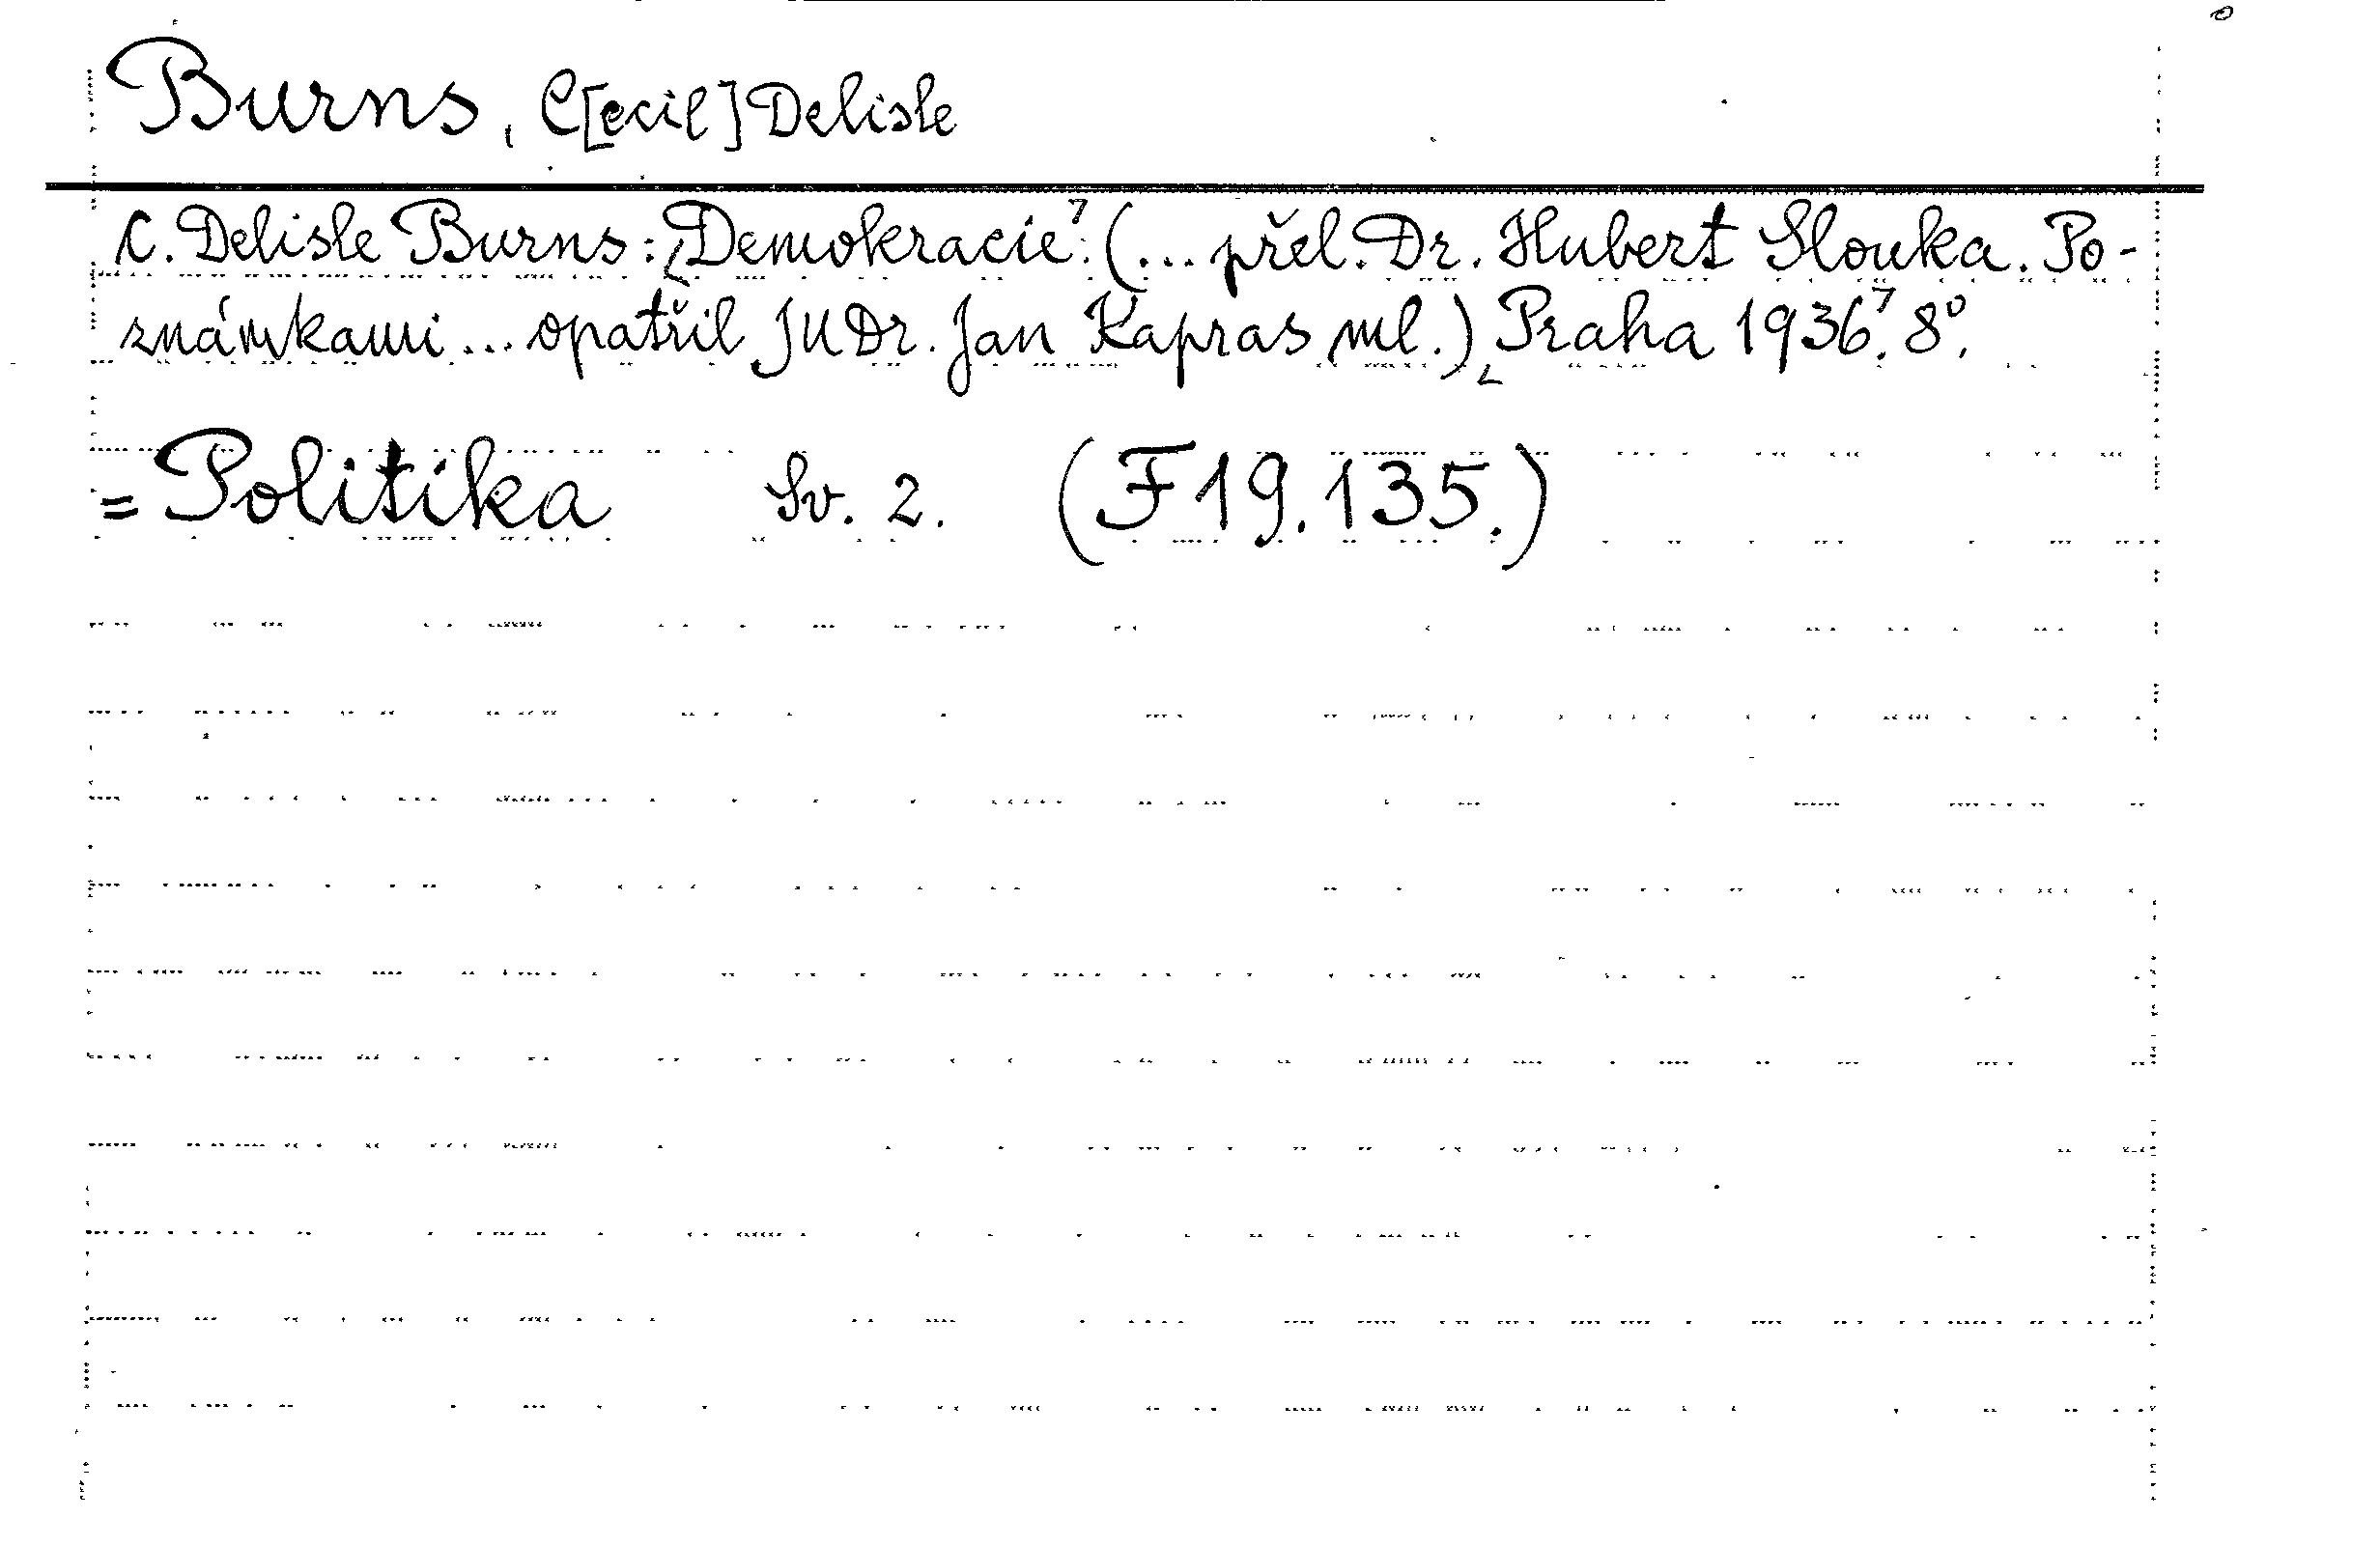 Burns, C[ecil] Delisle
C. Delisle Burns: Demokracie. (... přel. Dr. Hubert Slouka. Po-
známkami... opatřil JUDr. Jan Kapras ml.) Praha 1936. 8°.
= Politika Sv. 2. (F19.135.)